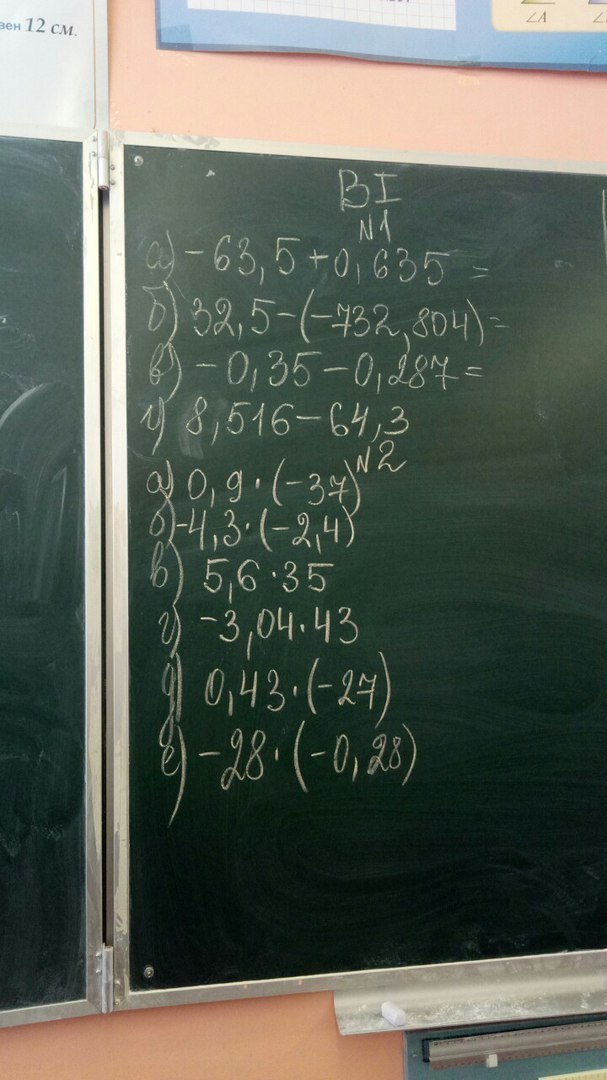 вен 12 см.
∠A
ВI
N1
а) -63,5+0,635 =
б) 32,5-(-732,804)=
в) -0,35-0,287=
г) 8,516-64,3
N2
а) 0,9·(-37)
б) -4,3·(-2,4)
в) 5,6·35
г) -3,04·43
д) 0,43·(-27)
е) -28·(-0,28)